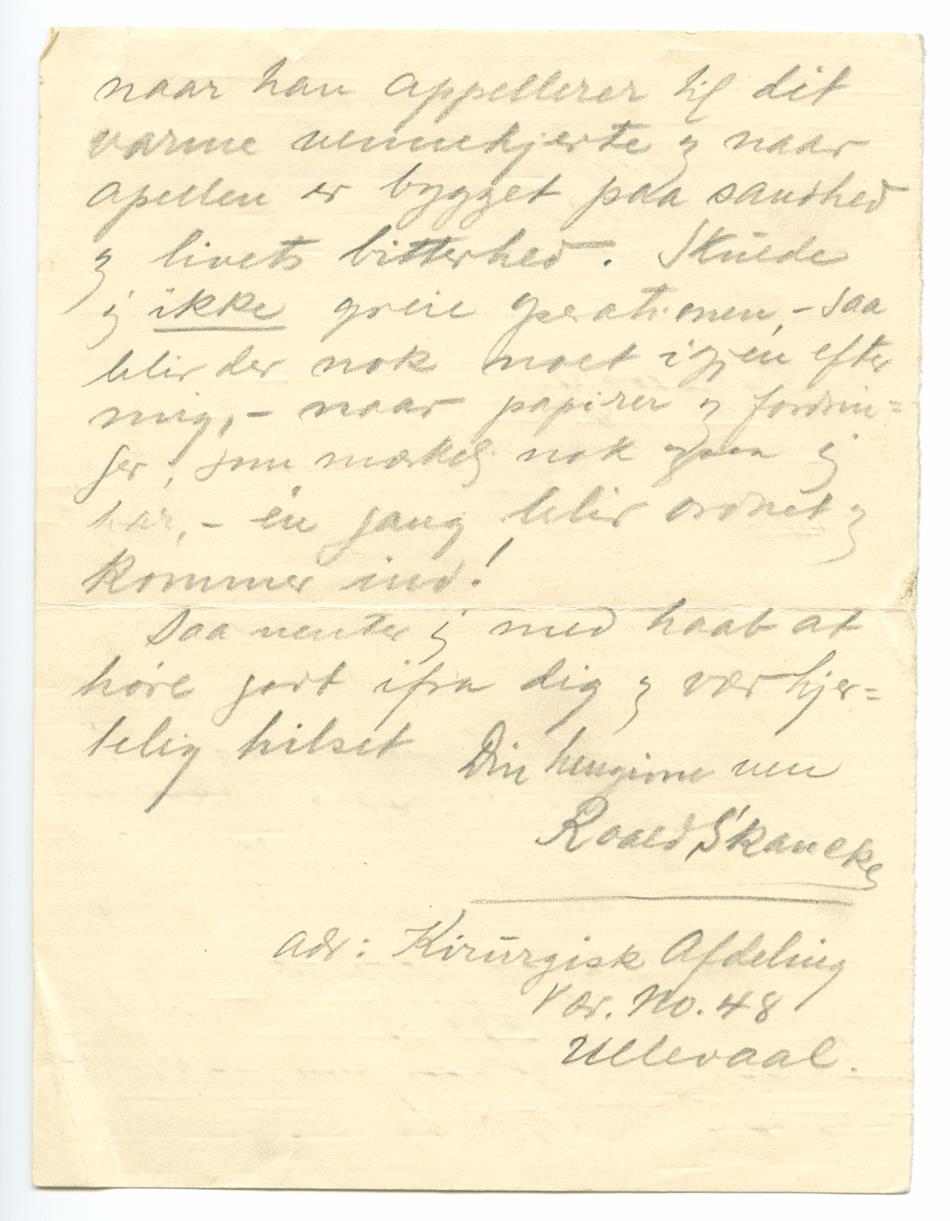 naar han appellerer til dit
varme vennehjerte og naar
apellen er bygget paa sandhed
og livets bitterhed. Skulde
jeg ikke greie operationen, – saa
blir der nok noet igjen efter
mig, – naar papirer og fordrin=
ger, som merkelig nok ogsaa jeg
har, – én gang blir ordnet og
kommer ind!
Saa venter jeg med haab at
høre godt ifra dig og vær hjer=
telig hilset
Din hengivne ven
Roald Skancke
Adr: Kirurgisk Afdeling
Vær. No. 48
Ullevaal.